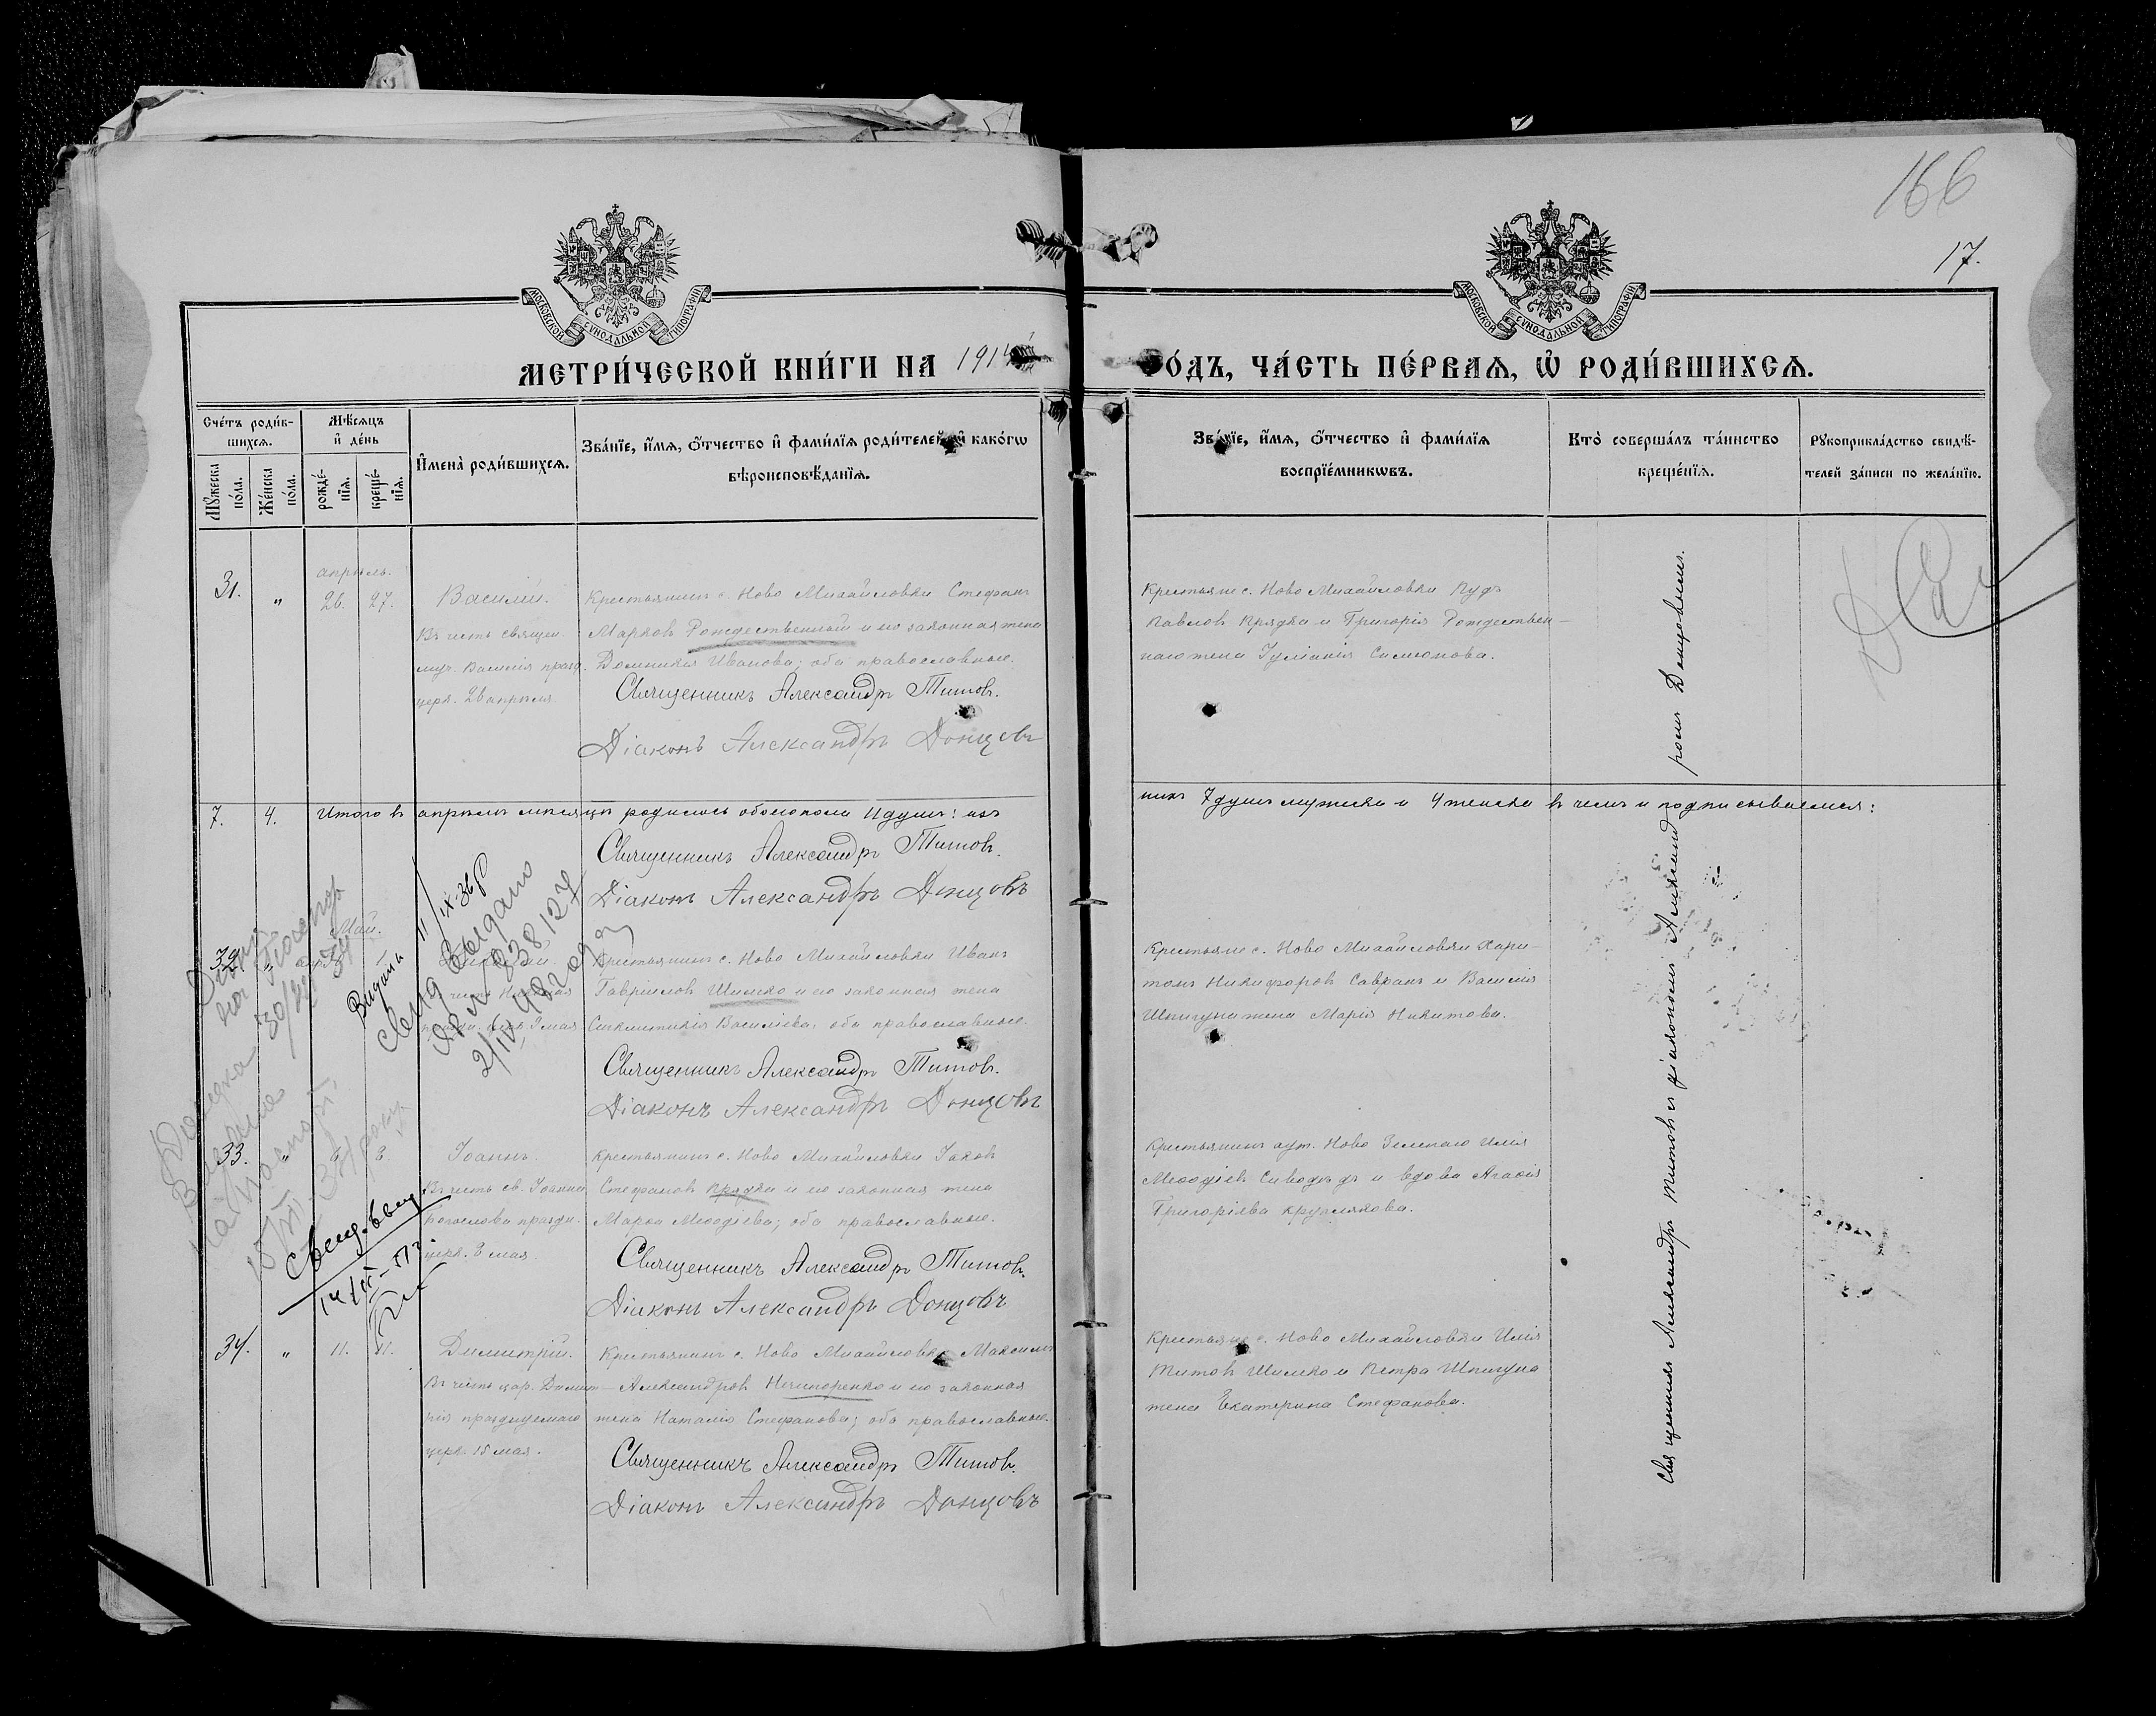 166
17.
МОСКОВСКОЙ СѴНОДАЛЬНОЙ ТИПОГРАФІИ
МОСКОВСКОЙ СѴНОДАЛЬНОЙ ТИПОГРАФІИ
МЕТРИ́ЧЕСКОЙ КНИ́ГИ НА 1914
ОДЪ, ЧА́СТЬ ПЕ́РВАѦ, Ѽ РОДИ́ВШИХСѦ.
Сче́тъ роди́в-
шихсѧ.
Мѣ́сѧцъ
и҆ де́нь
Мꙋ́жеска
по́ла.
Же́нска
по́ла.
рожде́-
нїѧ.
креще́-
нїѧ.
И҆мена̀ роди́вшихсѧ.
Зва́нїе, и҆́мѧ, ѻ҆́тчество и҆ фами́лїѧ роди́телей, и҆ како́гѡ
вѣроисповѣ́данїѧ.
Зва́нїе, и҆́мѧ, ѻ҆́тчество и҆ фами́лїѧ
воспрїе́мникѡвъ.
Кто̀ соверша́лъ та́инство
креще́нїѧ.
Рꙋкоприкла́дство свидѣ́-
телей за́писи по жела́нїю.
апрѣль.
31. " 26. 27. Василій.
Въ честь священ-
муч. Василія празд.
церк. 26 апрѣля
Крестьянинъ с. Ново Михайловки Стефанъ
Марковъ Рождественскій и его законная жена
Домникія Иванова; оба православные.
Священникъ Александръ Титовъ.
Діаконъ Александръ Донцовъ
Крестьяне с. Ново Михайловки Кудъ
Павловъ Крядка и Григорія Рождествен-
наго жена Іуліанія Симеонова.
7. 4. Итого въ апрѣлѣ мѣсяцѣ родилось обоего пола 11 душъ: изъ
нихъ 7 душъ мужеска и 4 женска въ чемъ и подписываемся:
Священникъ Александръ Титовъ.
Діаконъ Александръ Донцовъ
Май.
32.
церк. 9 мая
Крестьянинъ с. Ново Михайловки Иванъ
Гавріиловъ Шимко и его законная жена
Синклитикія Василіева; оба православные.
Священникъ Александръ Титовъ.
Діаконъ Александръ Донцовъ
Крестьяне с. Ново Михайловки Хари-
тонъ Никифоровъ Савранъ и Василія
Шпигуна жена Марія Никитова.
Видана 11/IX-36 р
Свид выдано
2/IV 48 года
33. " 6. 8. Іоаннъ.
Въ честь св. Іоанна
Богослова праздн.
церк. 8 мая.
Крестьянинъ с. Ново Михайловки Іаковъ
Стефановъ Крядка и его законная жена
Марѳа Меѳодіева; оба православные.
Священникъ Александръ Титовъ.
Діаконъ Александръ Донцовъ
Крестьянинъ хут. Ново Зеленаго Илія
Меѳодіевъ Сиводѣдъ и вдова Агаѳія
Григоріева Круглякова.
34. " 11. 11. Димитрій.
Въ честь цар. Димит-
рія празднуемаго
церк. 15 мая.
Крестьянинъ с. Ново Михайловки Максимъ
Александровъ Нечипоренко и его законная
жена Наталія Стефанова; оба православные.
Священникъ Александръ Титовъ.
Діаконъ Александръ Донцовъ
Крестьяне с. Ново Михайловки Илія
Титовъ Шимко и Петра Шпигуна
жена Екатерина Стефанова.
Священникъ Александръ Титовъ и діакономъ Александ
ромъ Донцовымъ.